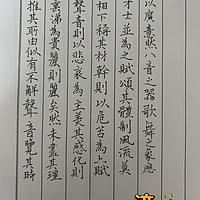 以廣意然八音之器歌舞之象歷
才士並為之賦頌其體制風流莫
相下稱其材幹則以危苦為上賦
聲音則以悲哀為主美其感化則
垂涕為貴麗則麗矣然未盡其理
推其所由似有不解聲音覽其時